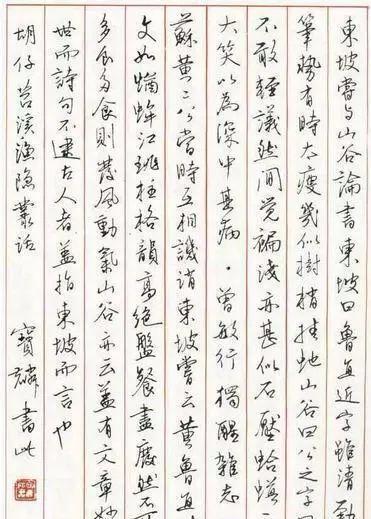 東坡嘗与山谷論書東坡曰魯直近字雖清勁
筆勢有時太瘦幾似樹梢挂虵山谷曰公之字
不敢輕議然間覺褊淺亦甚似石壓蛤蟆二
大笑以為深中其病．曾敏行獨醒雜志
蘇黃二公當時互相譏誚東坡嘗云黃魯直
文如蝤蛑江珧柱格韻高絕盤餐盡廢然不
多食多食則發風動氣山谷亦云蓋有文章妙
世而詩句不逮古人者蓋指東坡而言也
胡仔苕溪漁隱叢話 寶璘書此